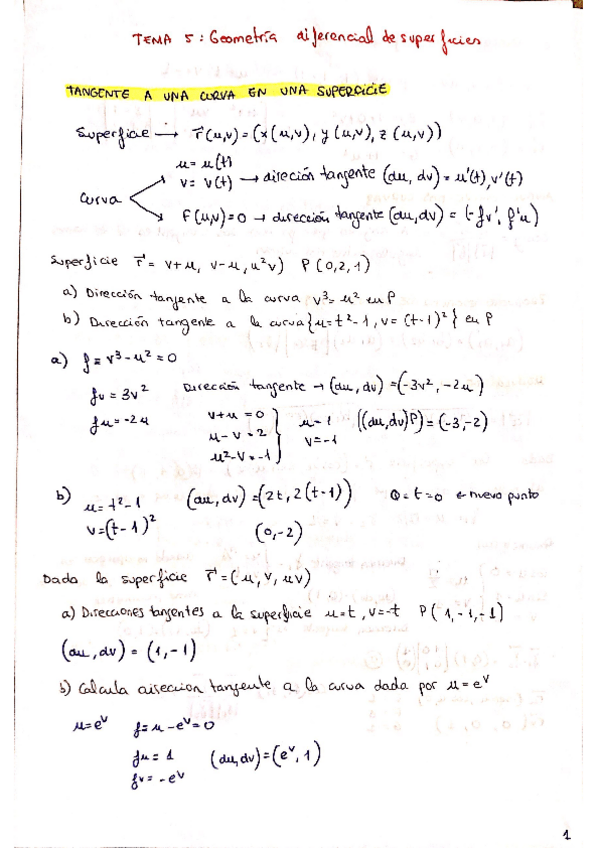 TEMA 5: Geometría diferencial de superficies
TANGENTE A UNA CURVA EN UNA SUPERFICIE
Superficie → r⃗(u,v) = (x(u,v), y(u,v), z(u,v))
Curva
u = u(t)
v = v(t) → direción tangente (du, dv) = u'(t), v'(t)
F(u,v) = 0 → dirección tangente (du, dv) = (-fv', f'u)
Superficie r⃗ = v+u, v-u, u²v) P(0,2,1)
a) Dirección tangente a la curva v³ = u² en P
b) Dirección tangente a la curva {u = t²-1, v = (t-1)²} en P
a) f = v³ - u² = 0
fv = 3v² Dirección tangente → (du, dv) = (-3v², -2u)
fu = -2u
v+u = 0
u-v = 2
u²-v = -1
u = 1
v = -1
((du,dv)P) = (-3,-2)
b) u = t²-1
v = (t-1)²
(du, dv) = (2t, 2(t-1)) 0 = t = 0 en nuevo punto
(0,-2)
Dada la superficie r⃗ = (u, v, uv)
a) Direcciones tangentes a la superficie u=t, v=-t P(1,-1,-1)
(du, dv) = (1,-1)
b) Calcula direccion tangente a la curva dada por u = eᵛ
u = eᵛ f = u - eᵛ = 0
fu = 1 (du, dv) = (eᵛ, 1)
fv = -eᵛ
1